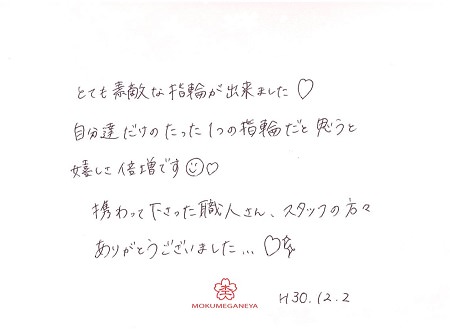 とても素敵な指輪が出来ました♡
自分達だけのたった1つの指輪だと思うと
嬉しさ倍増です☺♡
携わって下さった職人さん、スタッフの方々
ありがとうございました...♡
杢
MOKUMEGANEYA
H30.12.2